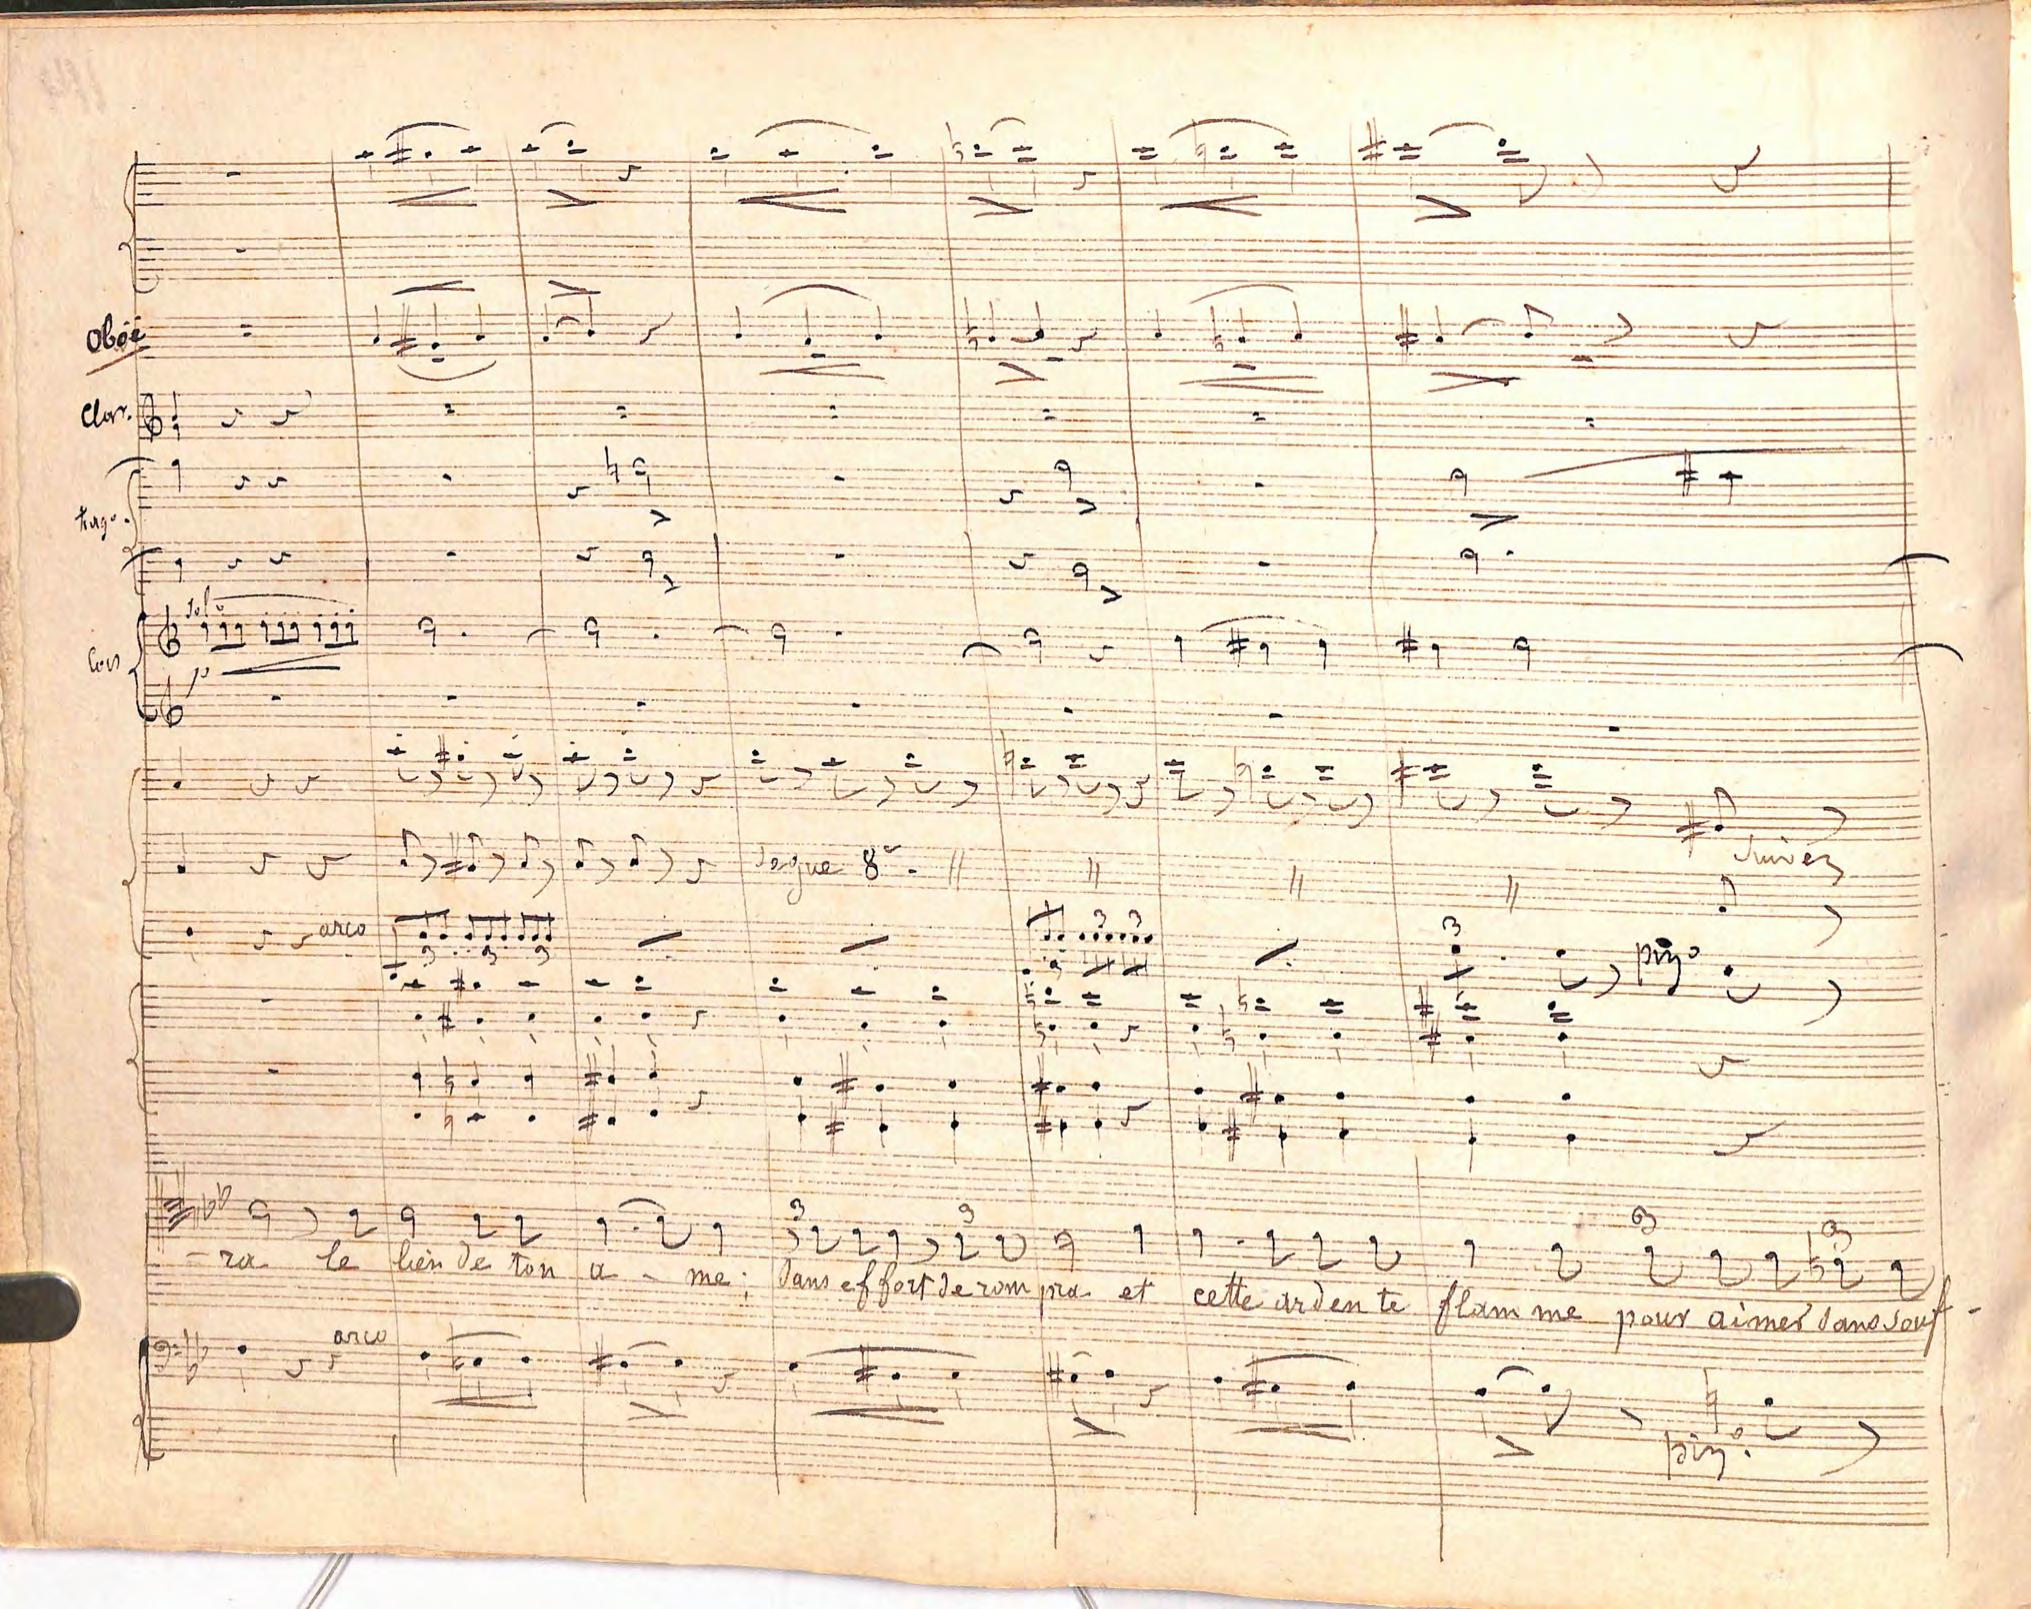 Oboé
Clar.
Fago.
Sol
Cors
p
Segue 8ª.
Suivez
arco
3 3 3 3 3 3
pizº
3 3 3 3
- ra le lien de ton a - me; Sans effort se rompra et cette ardente flamme pour aimer sans souf -
arco
pizº.